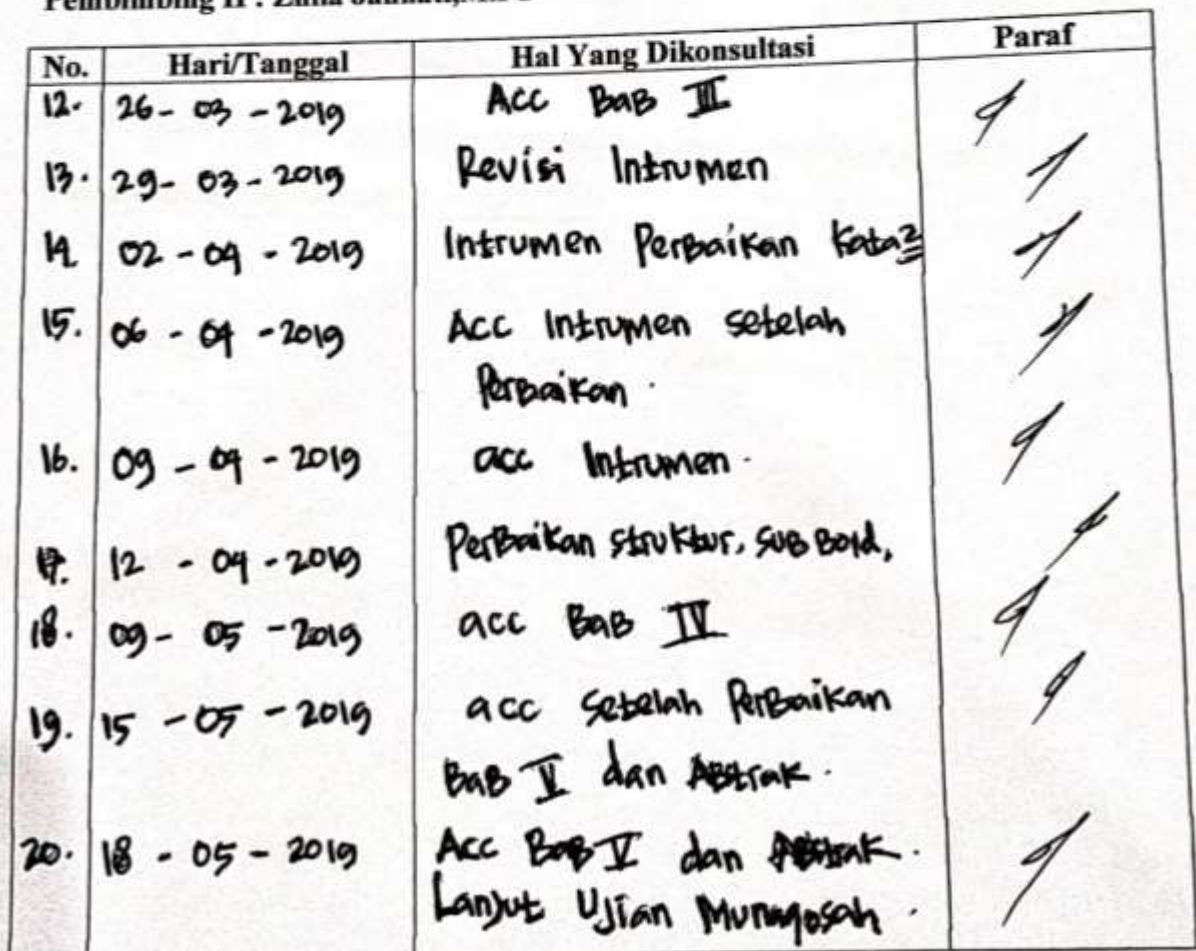 Pembimbing II :
No. Hari/Tanggal Hal Yang Dikonsultasi Paraf
12. 26-03-2019 Acc Bab III
13. 29-03-2019 Revisi Intrumen
14 02-04-2019 Intrumen Perbaikan Kata2
15. 06-04-2019 Acc Intrumen setelah
Perbaikan.
16. 09-04-2019 acc Intrumen.
17. 12-04-2019 Perbaikan struktur, sub Bold,
18. 09-05-2019 acc Bab IV
19. 15-05-2019 acc Setelah Perbaikan
Bab V dan Abstrak.
20. 18-05-2019 Acc Bab V dan Abstrak.
Lanjut Ujian Munaqosah.